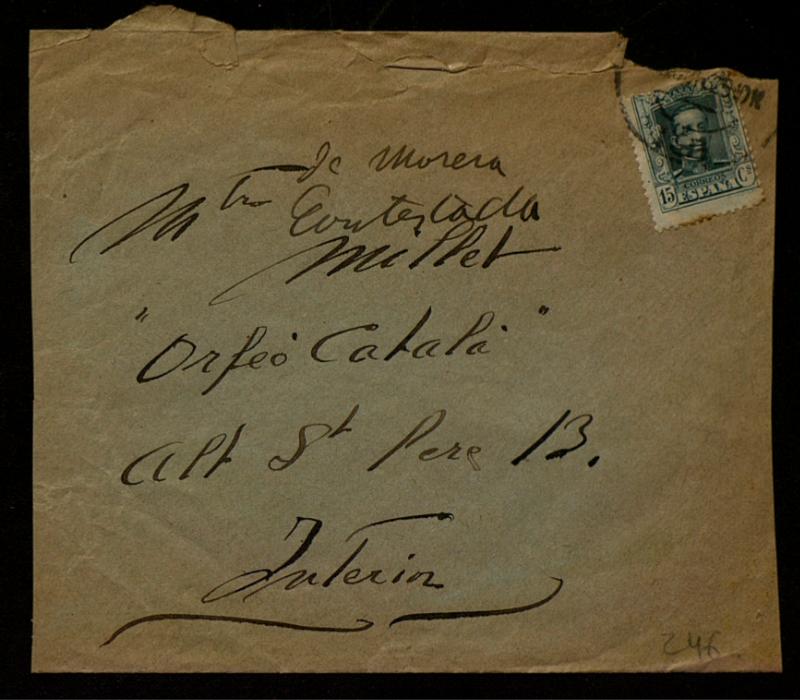 de Morera
Contestada
Mtre Millet
"Orfeó Català"
Alt St Pere 13.
Interior
CORREOS
15 ESPAÑA Cs
246